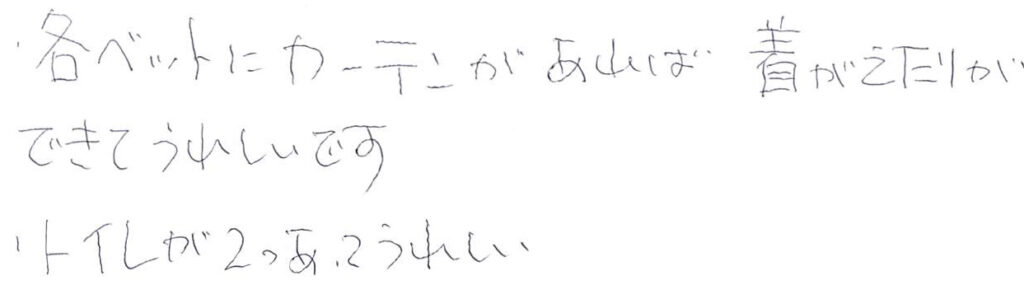 ・各ベットにカーテンがあれば 着がえだりが
できてうれしいです
・トイレが2つあってうれしい